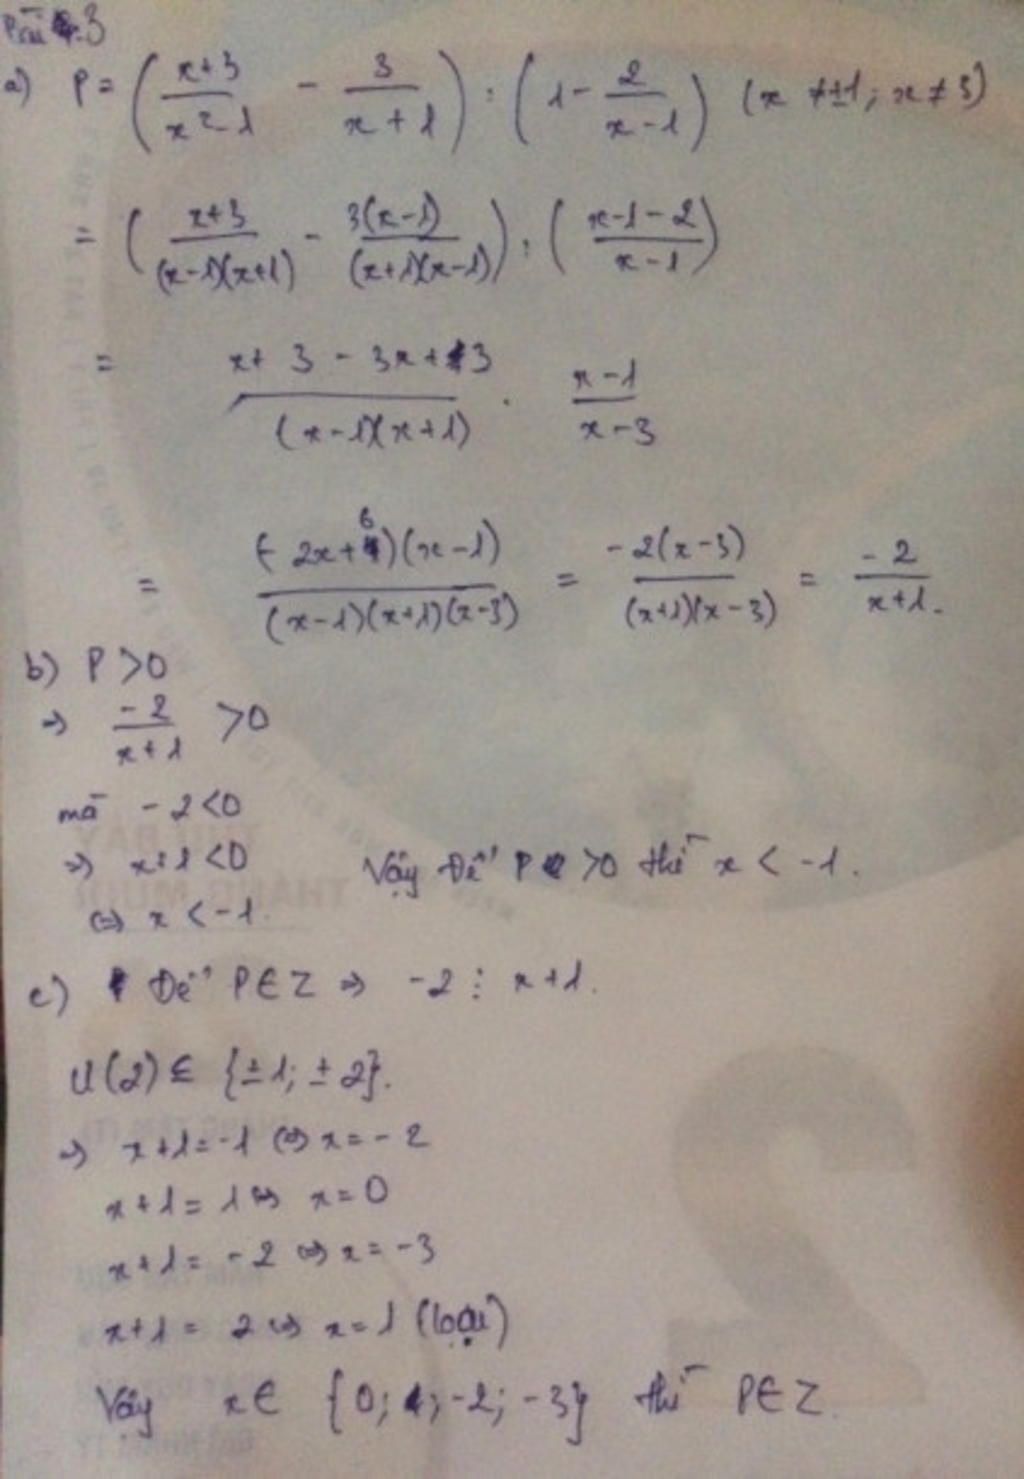 Bài 3
a) P = ( (x+3)/(x²-1) - 3/(x+1) ) : ( 1 - 2/(x-1) ) (x ≠ ±1; x ≠ 3)
= ( (x+3)/((x-1)(x+1)) - 3(x-1)/((x+1)(x-1)) ) : ( (x-1-2)/(x-1) )
= (x+3-3x+3)/((x-1)(x+1)) . (x-1)/(x-3)
= (-2x+6)(x-1)/((x-1)(x+1)(x-3)) = -2(x-3)/((x+1)(x-3)) = -2/(x+1).
b) P > 0
⇒ -2/(x+1) > 0
mà -2 < 0
⇒ x+1 < 0 Vậy Để P > 0 thì x < -1.
⇔ x < -1.
c) Để P ∈ Z ⇒ -2 ⋮ x+1.
Ư(2) ∈ {±1; ±2}.
⇒ x+1 = -1 ⇔ x = -2
x+1 = 1 ⇔ x = 0
x+1 = -2 ⇔ x = -3
x+1 = 2 ⇔ x = 1 (loại)
Vậy x ∈ {0; -2; -3} thì P ∈ Z.